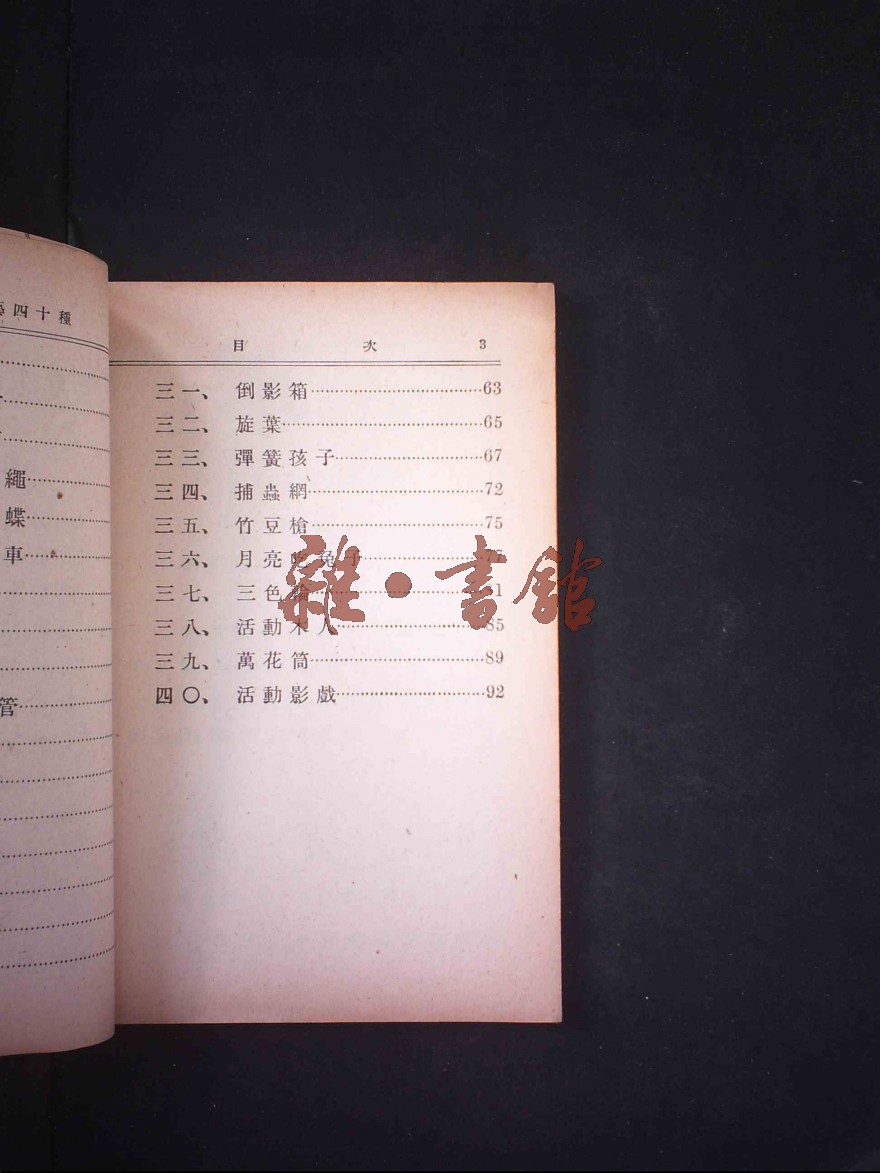 四十種
繩
蝶
車
管
目 次 3
三一、 倒影箱 63
三二、 旋葉 65
三三、 彈簧孩子 67
三四、 捕蟲網 72
三五、 竹豆槍 75
三六、 月亮吃兔子 77
三七、 三色 1
三八、 活動木人 85
三九、 萬花筒 89
四〇、 活動影戲 92
雜·書館